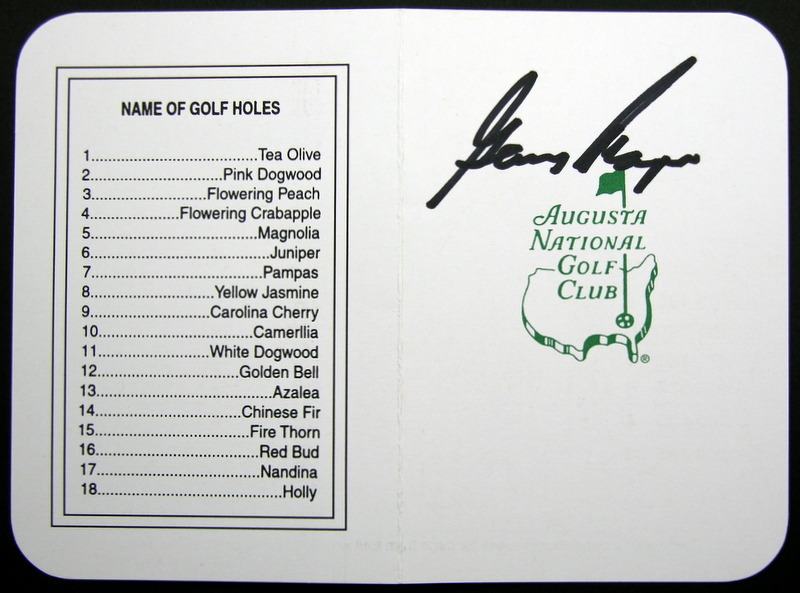 NAME OF GOLF HOLES
1..................................................Tea Olive
2........................................Pink Dogwood
3...................................Flowering Peach
4..........................Flowering Crabapple
5..................................................Magnolia
6.....................................................Juniper
7...................................................Pampas
8......................................Yellow Jasmine
9.....................................Carolina Cherry
10...............................................Camerllia
11...................................White Dogwood
12...........................................Golden Bell
13....................................................Azalea
14...........................................Chinese Fir
15..............................................Fire Thorn
16.................................................Red Bud
17.................................................Nandina
18.......................................................Holly
Gary Player
AUGUSTA
NATIONAL
GOLF
CLUB
®